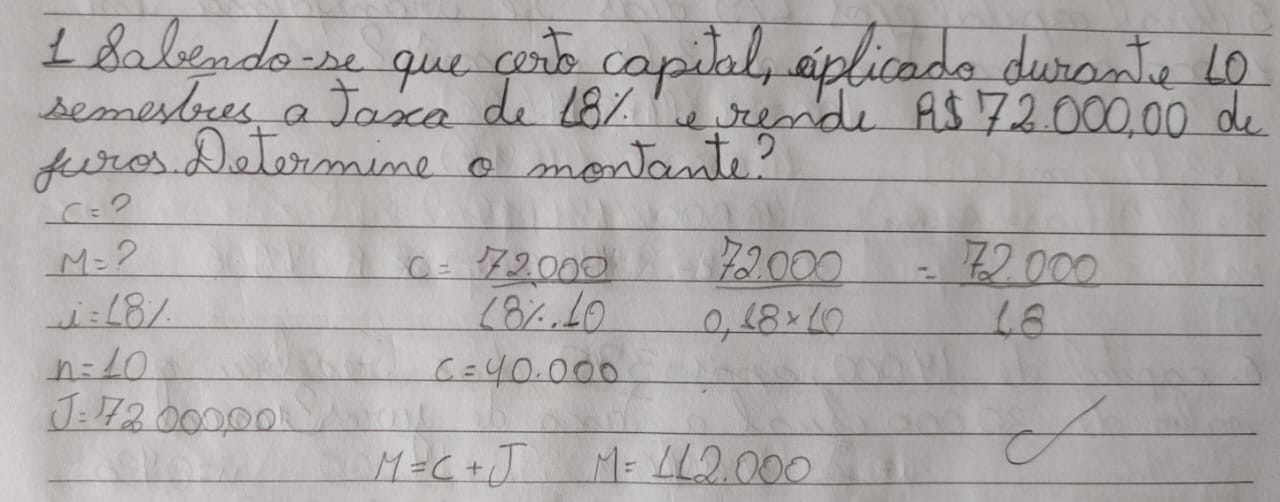 1 Sabendo-se que certo capital, aplicado durante 10
semestres a taxa de 18% e rende R$ 72.000,00 de
juros. Determine o montante?
C=?
M=? C= 72.000 72.000 = 72.000
i=18% 18%.10 0,18x10 1,8
n=10 C=40.000
J=72000,00
M=C+J M=112.000